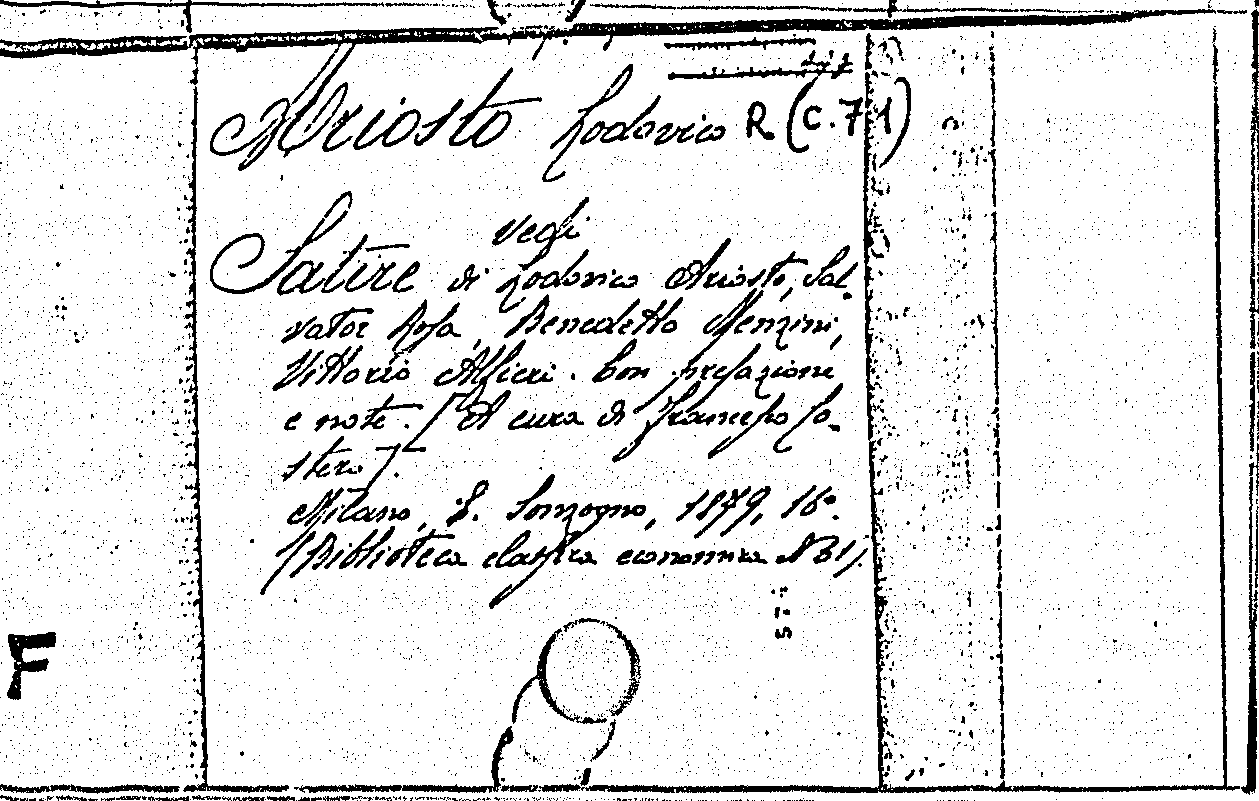 Ariosto Lodovico R (C.71)
vedi
Satire di Lodovico Ariosto, Sal-
vator Rosa, Benedetto Menzini,
Vittorio Alfieri. Con prefazione
e note. [A cura di Francesco Co-
stero].
Milano, E. Sonzogno, 1879, 16°.
(Biblioteca classica economica N 61).
F